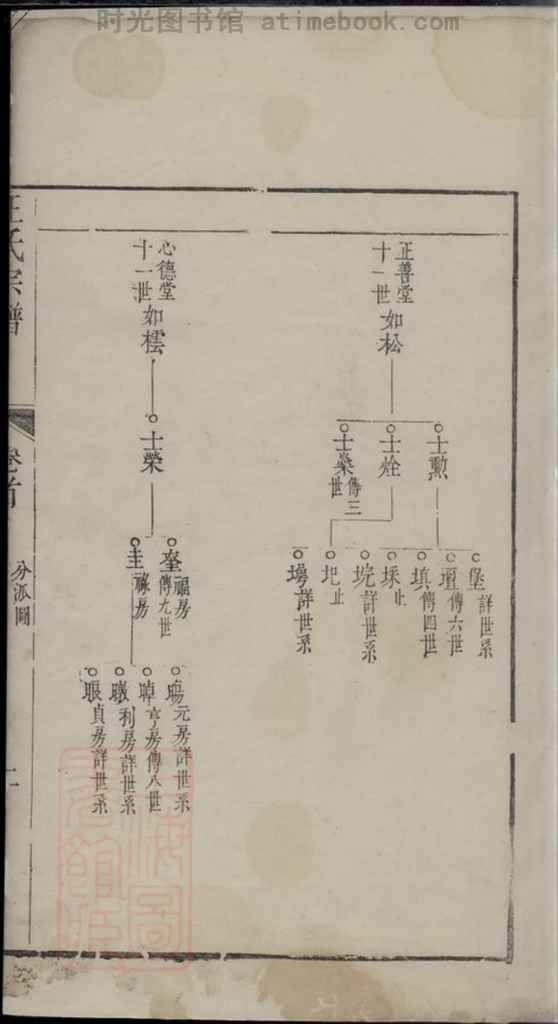 时光图书馆 atimebook.com
正善堂
十一世
如松
士勲
士烇
士榮
傳三世
堡 詳世系
壇 傳六世
填 傳四世
埰 止
垸 詳世系
圯 止
塲 詳世系
心德堂
十一世
如橒
士榮
奎 福房 傳九世
圭 祿房
元房詳世系
亨房傳八世
利房詳世系
貞房詳世系
王氏宗譜
卷首
分派圖